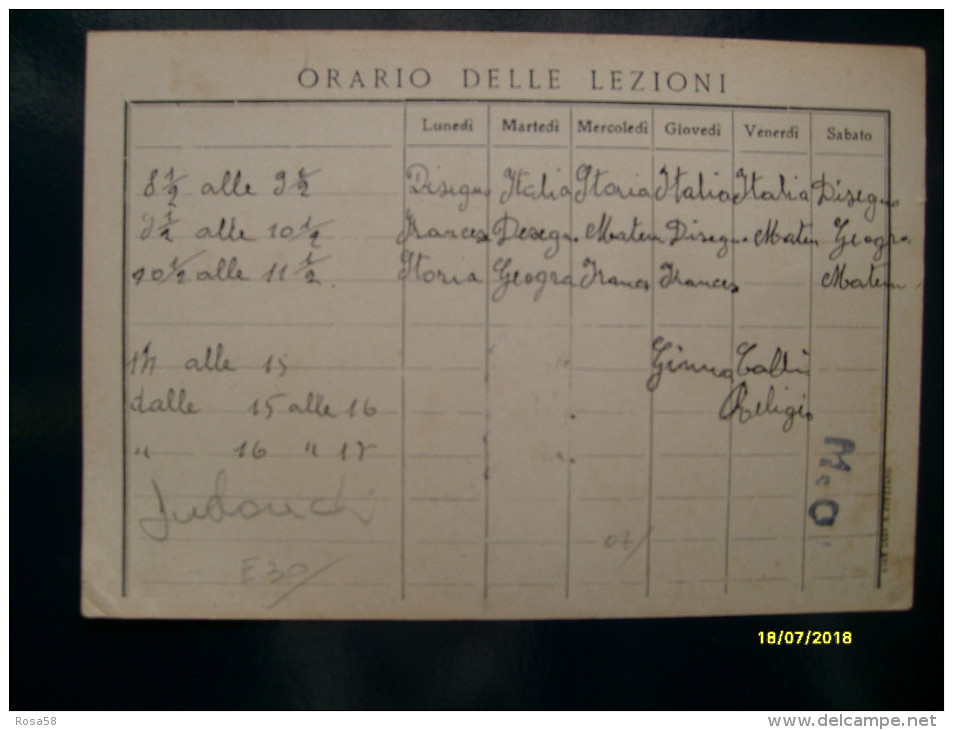 ORARIO DELLE LEZIONI
Lunedì Martedì Mercoledì Giovedì Venerdì Sabato
8 1/2 alle 9 1/2 Disegn Italia Storia Italia Italia Disegno
9 1/2 alle 10 1/2 Frances Desegn Matem Disegn Matem Geogra
10 1/2 alle 11 1/2 Storia Geogra Franc Frances Matem
14 alle 15 Ginna Calli
dalle 15 alle 16 Religio
" 16 " 17
E 30/
18/07/2018
Rosa58
delcampe.net